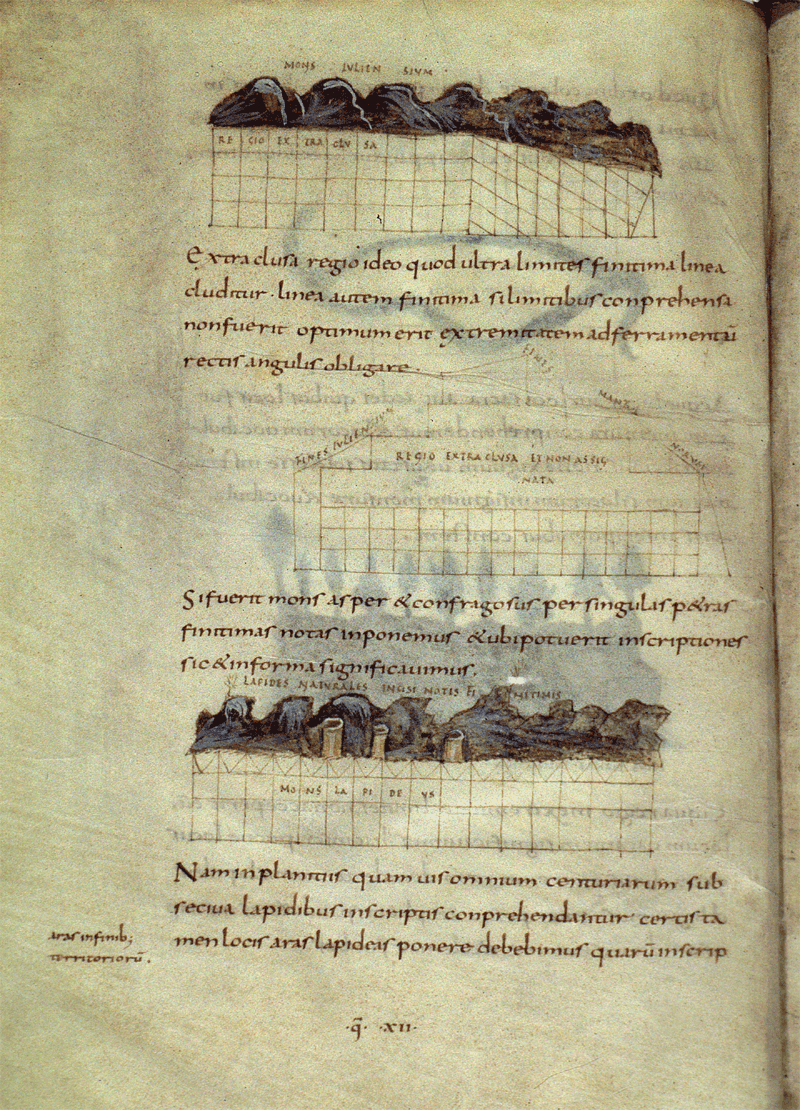 MONS IVLIEN SIVM
RE GIO EX TRA CLV SA
Extra clusa regio ideo quod ultra limites finitima linea
cluditur · linea autem finitima si limitibus conprehensa
non fuerit optimum erit extremitatem ad ferramentū
rectis angulis obligare ·
FINES
MANTV
FINES IVLIENSIVM
REGIO EXTRA CLVSA ET NON ASSIG
NATA
Si fuerit mons asper & confragosus per singulas p&ras
finitimas notas inponemus & ubi potuerit inscriptiones
sic & in forma significavimus.
LAPIDES NATVRALES INCISI NOTIS FI NITIMIS
MO NS LA PI DE VS
Nam in planitiis quam vis omnium centuriarum sub
seciva lapidibus inscriptis conprehendantur certis ta
men locis aras lapideas ponere debebimus quarū inscrip
aras in finib;
territoriorū .
·q̄· ·XII·